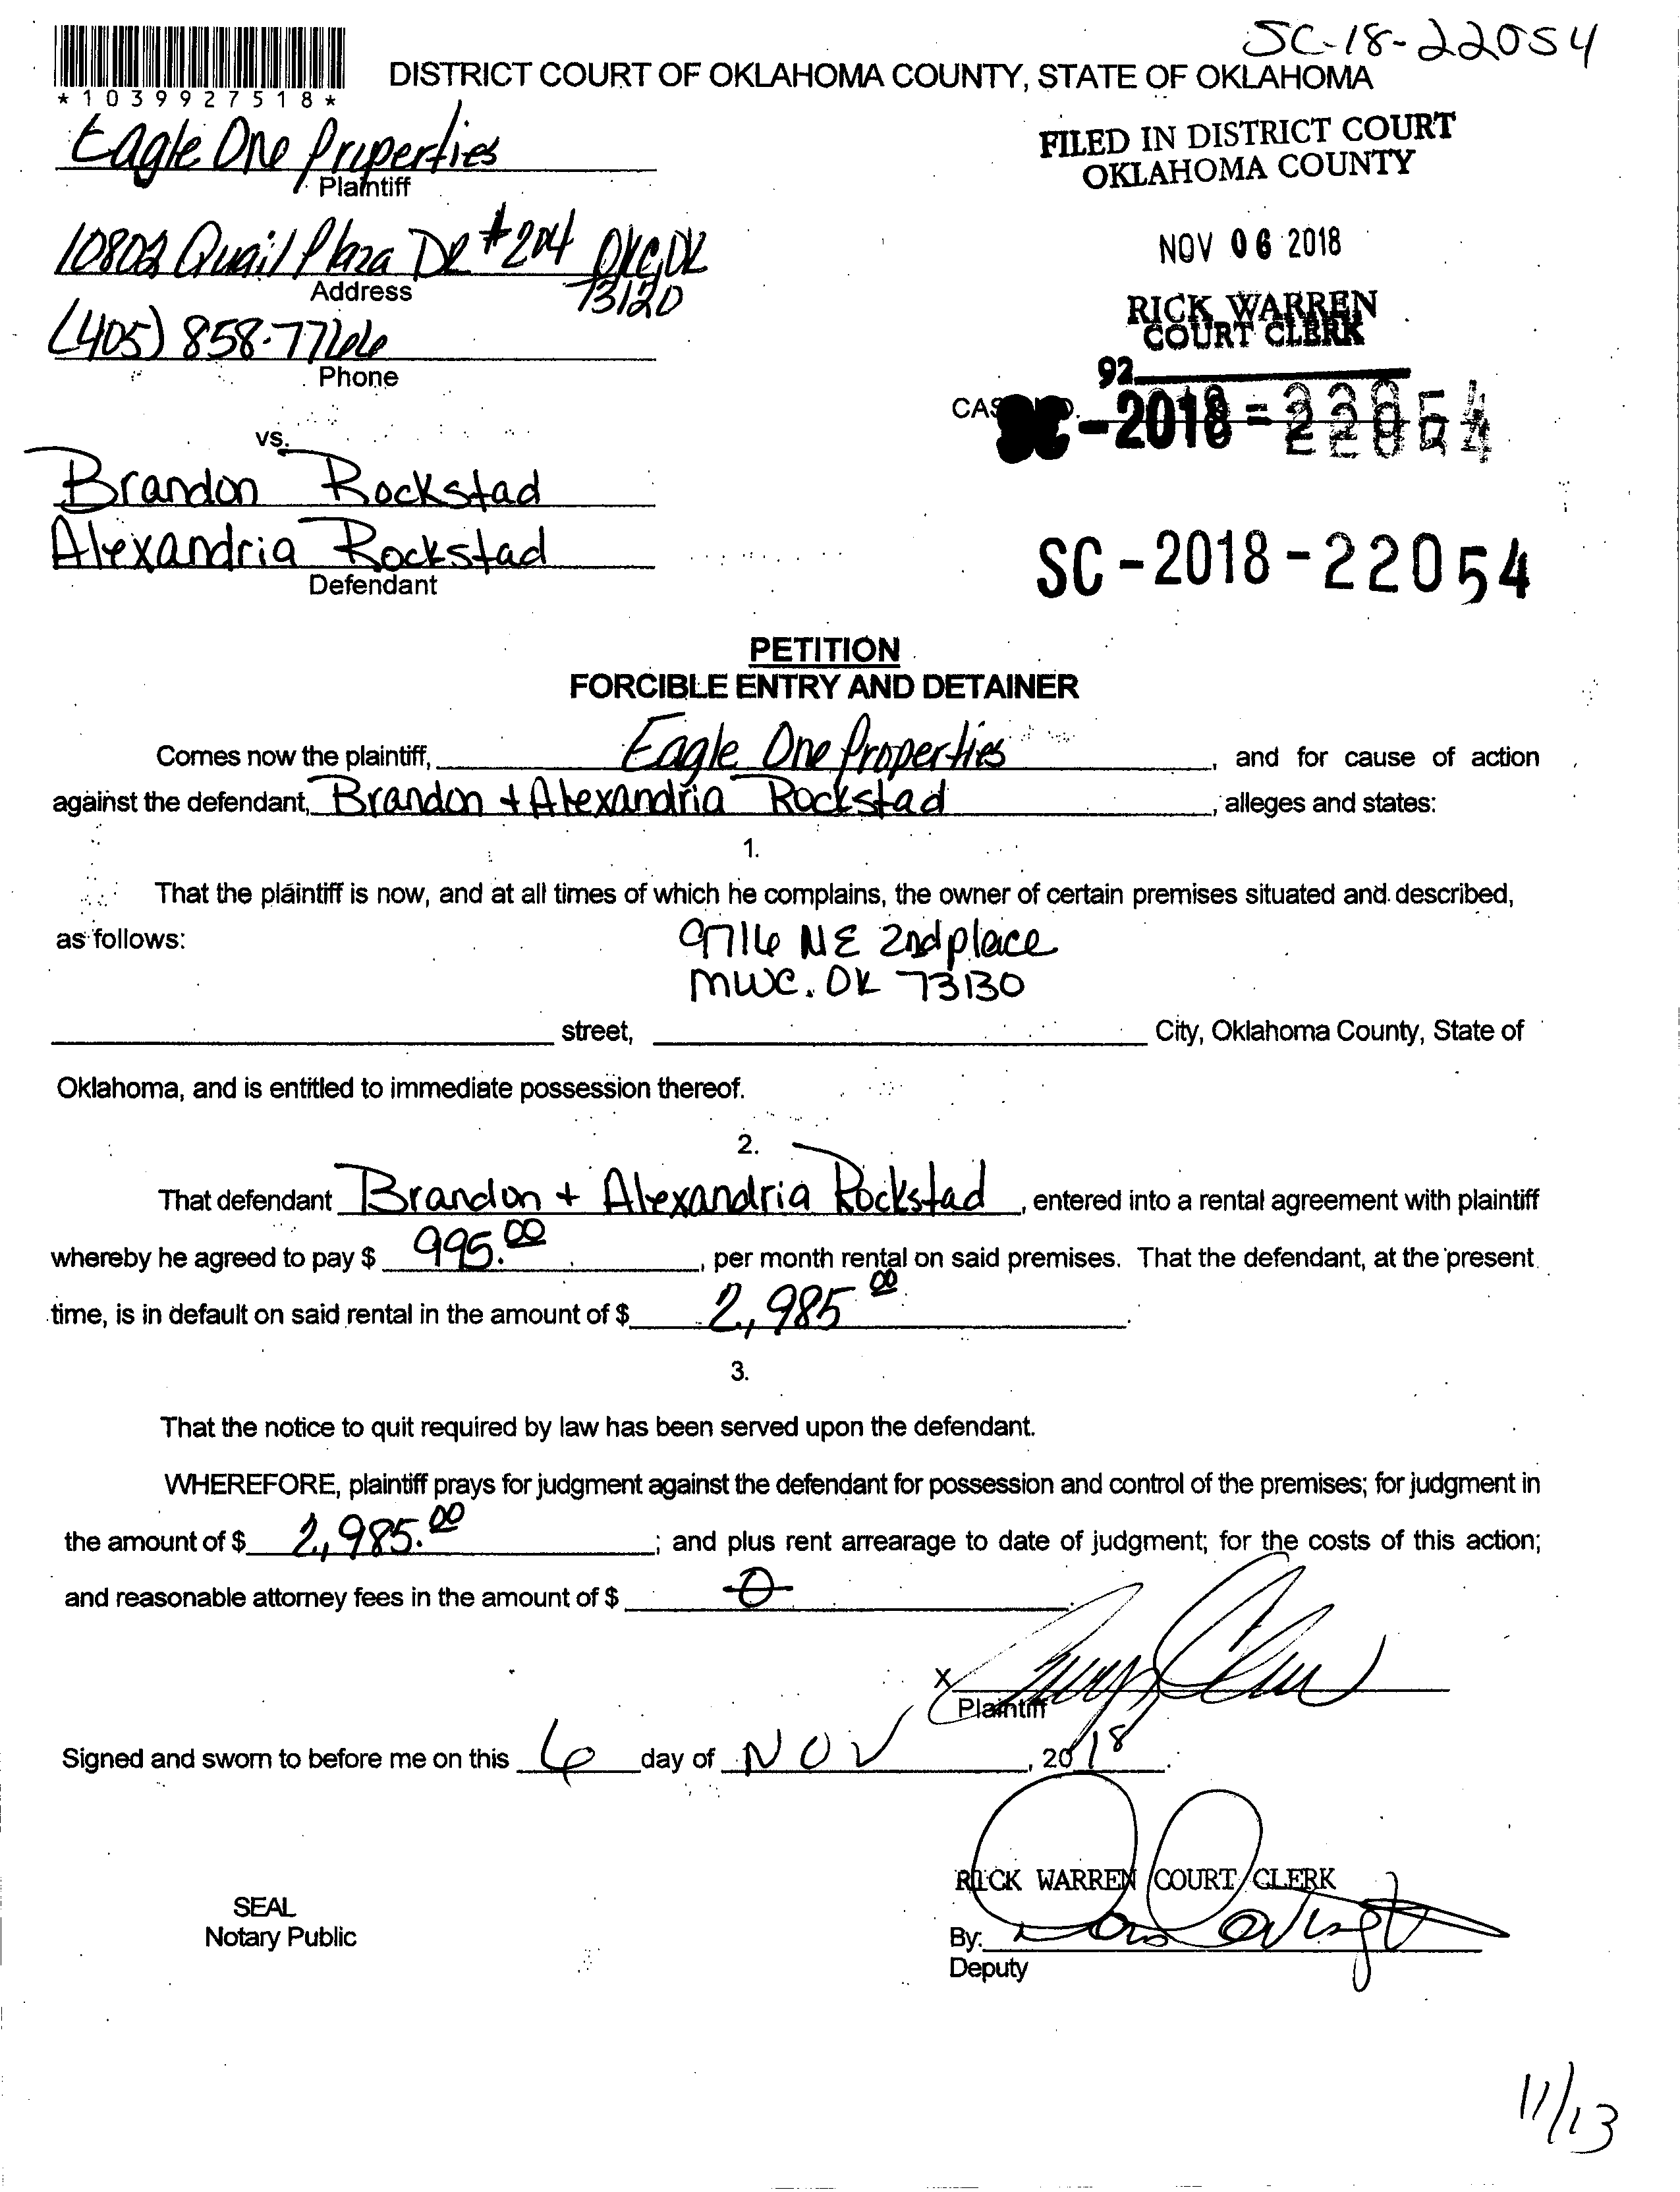 SC-18-22054
DISTRICT COURT OF OKLAHOMA COUNTY, STATE OF OKLAHOMA
*1039927518*
Eagle One Properties
Plaintiff
FILED IN DISTRICT COURT
OKLAHOMA COUNTY
10802 Quail Plaza DR #204 OKC, OK
73120
Address
NOV 06 2018
(405) 858-7766
Phone
RICK WARREN
COURT CLERK
92
CASE NO. SC-2018-22054
vs.
Brandon Rockstad
Alexandria Rockstad
Defendant
SC-2018-22054
PETITION
FORCIBLE ENTRY AND DETAINER
Comes now the plaintiff, Eagle One Properties, and for cause of action
against the defendant, Brandon + Alexandria Rockstad, alleges and states:
1.
That the plaintiff is now, and at all times of which he complains, the owner of certain premises situated and described,
as follows: 9716 NE 2nd place
MWC. OK 73130
street, City, Oklahoma County, State of
Oklahoma, and is entitled to immediate possession thereof.
2.
That defendant Brandon + Alexandria Rockstad, entered into a rental agreement with plaintiff
whereby he agreed to pay $ 995.00, per month rental on said premises. That the defendant, at the present
time, is in default on said rental in the amount of $ 2,985 00.
3.
That the notice to quit required by law has been served upon the defendant.
WHEREFORE, plaintiff prays for judgment against the defendant for possession and control of the premises; for judgment in
the amount of $ 2,985.00; and plus rent arrearage to date of judgment; for the costs of this action;
and reasonable attorney fees in the amount of $ 0.
X
Plaintiff
Signed and sworn to before me on this 6 day of NOV, 2018.
RICK WARREN COURT CLERK
SEAL
Notary Public
By:
Deputy
11/13